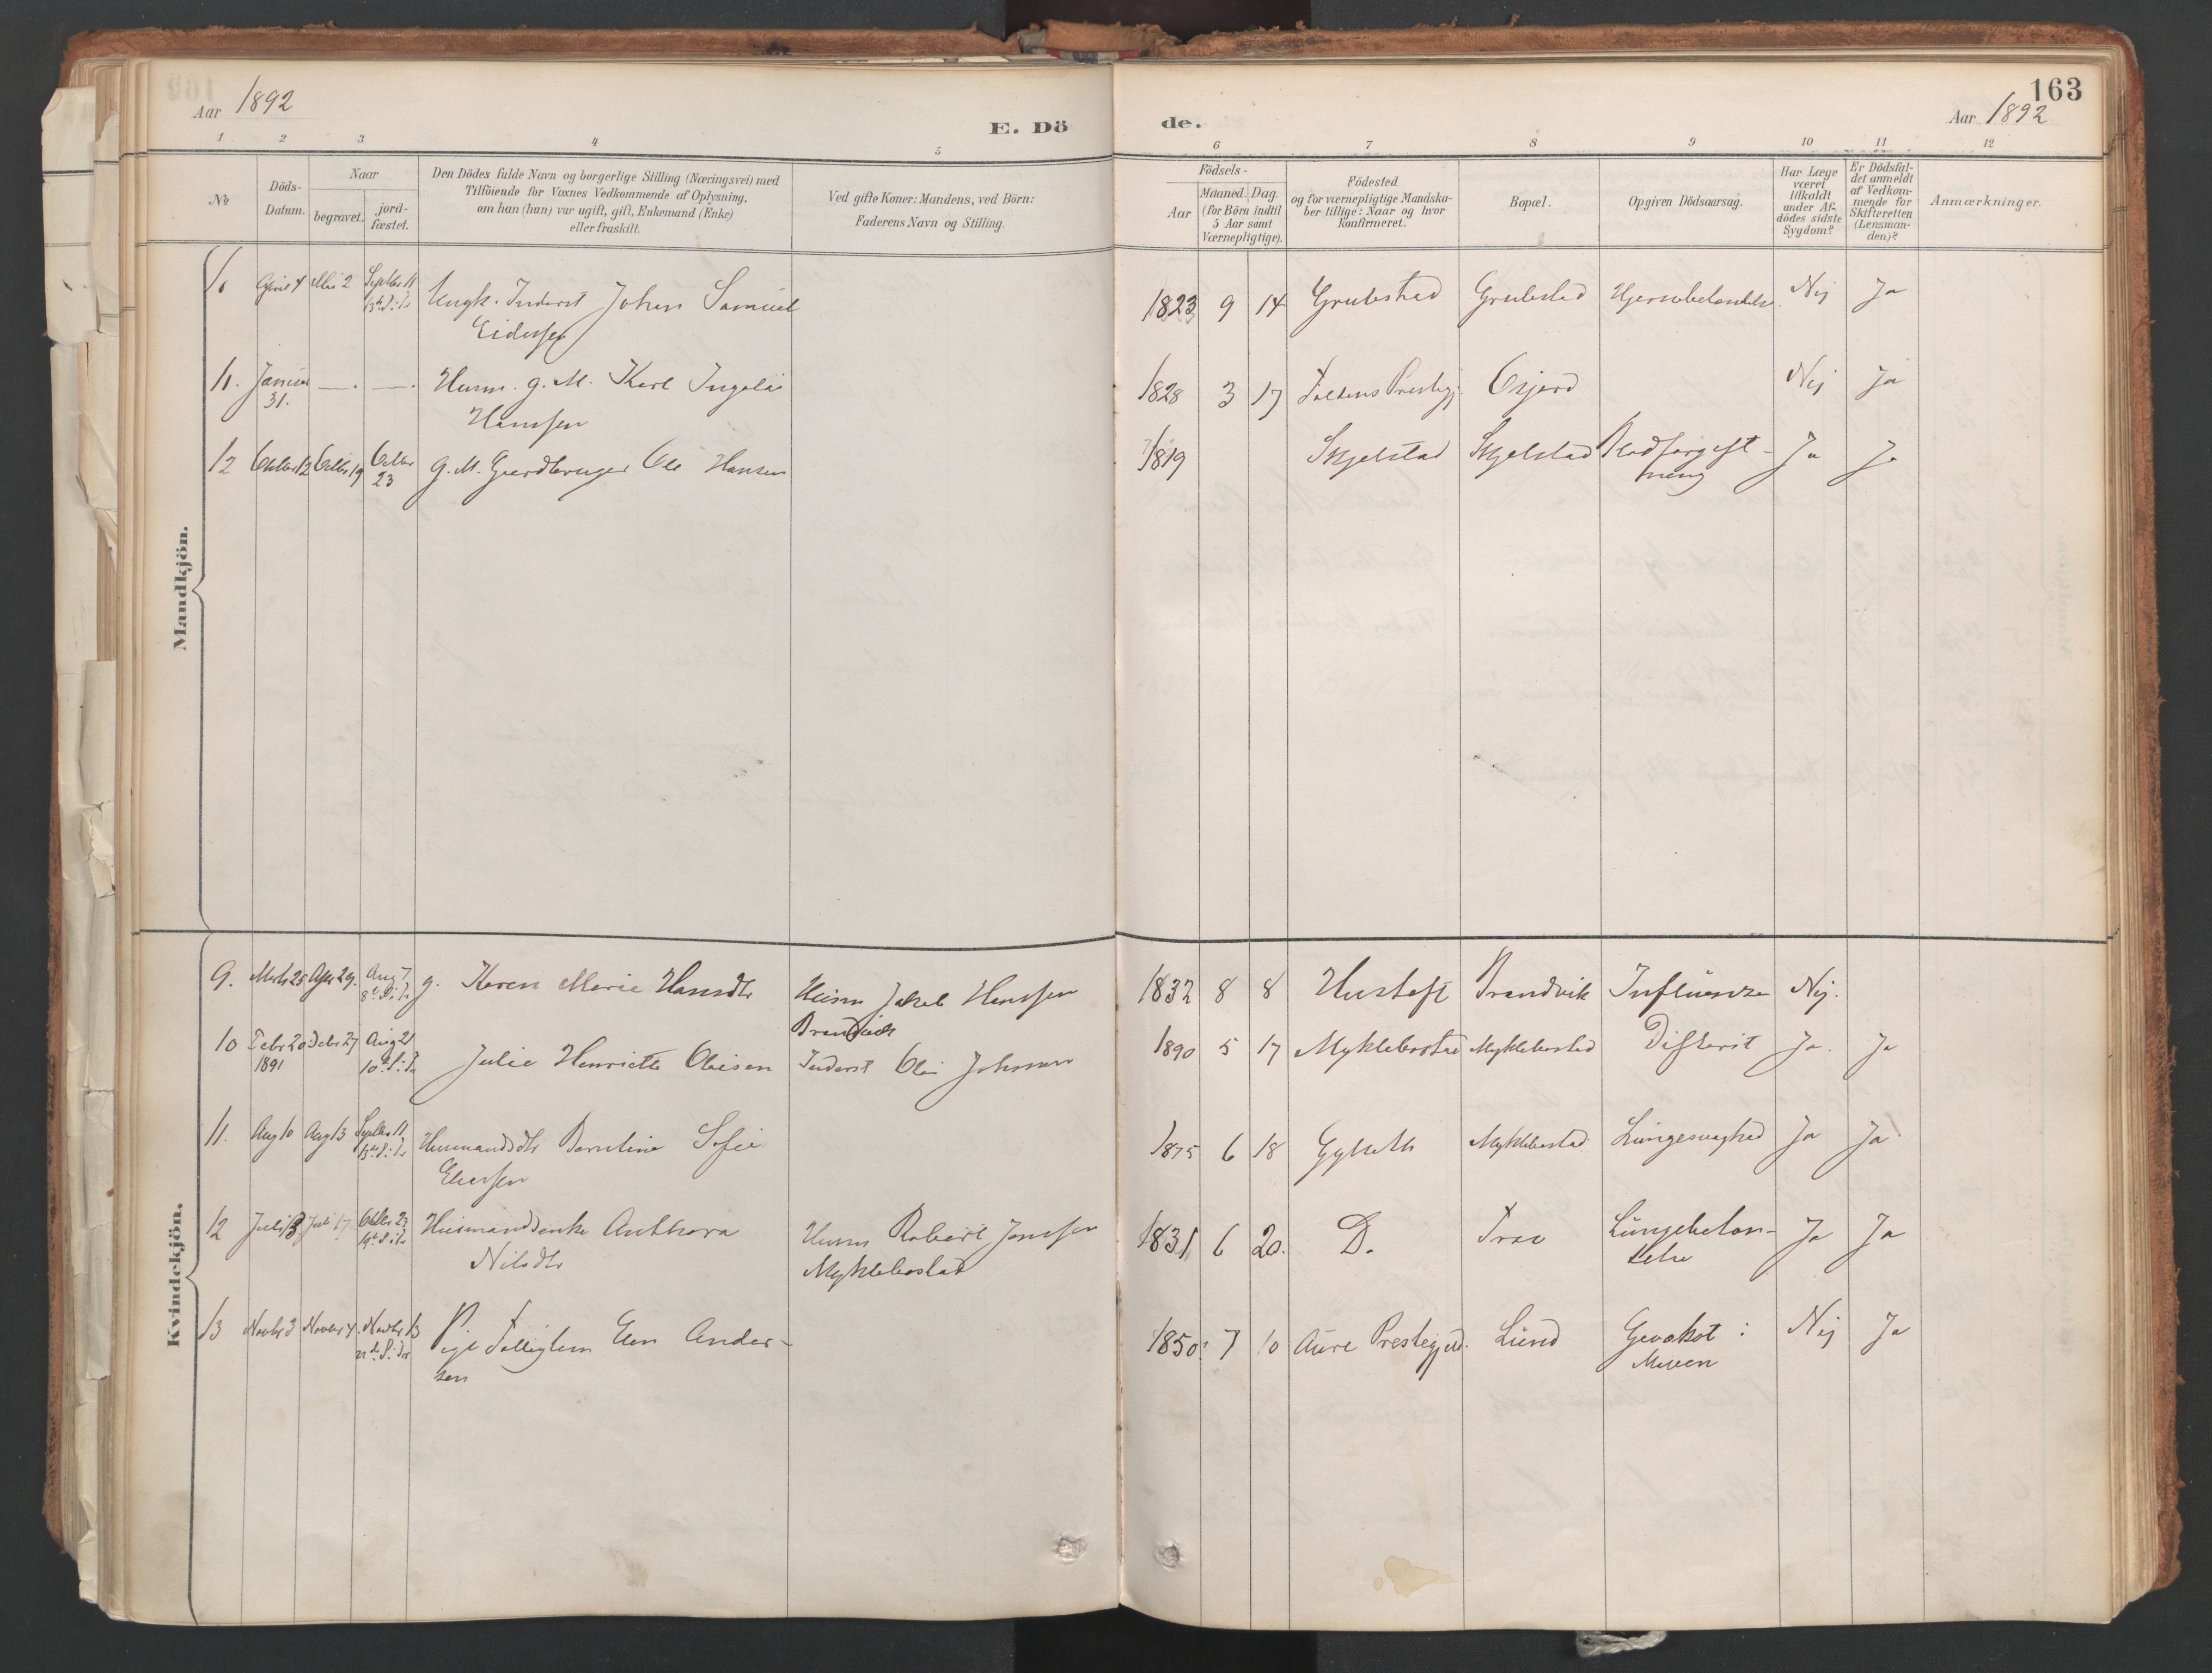 163
Aar 1892
E. Dö
de.
Aar 1892
1 2 3 4 5 6 7 8 9 10 11 12
No
Döds-
Datum.
Naar
begravet.
jord-
fæstet.
Den Dödes fulde Navn og borgerlige Stilling (Næringsvei) med
Tilföiende for Voxnes Vedkommende af Oplysning,
om han (hun) var ugift, gift, Enkemand (Enke)
eller fraskilt.
Ved gifte Koner: Mandens, ved Börn:
Faderens Navn og Stilling.
Födsels-
Aar
Maaned. Dag.
(for Börn indtil
5 Aar samt
Værnepligtige).
Födested
og for værnepligtige Mandska-
ber tillige: Naar og hvor
konfirmeret.
Bopæl.
Opgiven Dödsaarsag.
Har Læge
været
tilkaldt
under Af-
dödes sidste
Sygdom?
Er Dödsfal-
det anmeldt
af Vedkom-
mende for
Skifteretten
(Lensman-
den)?
Anmærkninger.
Mandkjön.
April 4 Mai 2 Septbr 11 Ungk. Inderst Johan Samuel 1823 9 14 Grubstad Grubstad Nej Ja
Eidissen
11. Januar — . — . Husm. g. M. Karl Ingelai 1828 3 17 Foldens Prestegj. Osjord Nej Ja
31.
Hansen
12 Oktbr 12 Octbr 19 Octbr g. M. Gaardbruger Ole Hansen 1819 Skjelstad Skjelstad Blodforgift- Ja Ja
23
ning
Kvindekjön.
9. Marts 25 Apr 29. Aug 7 g. Karen Marie Hansdtr Husm Jakob Hanssen 1832 8 8 Hustoft Brandvik Influensa Nej.
Brandvik
10 Febr 20 Febr 27 Aug 21 Julie Henriette Olaisen Inderst Olai Johnsen 1890 5 17 Myklebostad Myklebostad Difterit Ja. Ja
1891
11. Aug 10 Aug 13 Septbr 11 Husmandsdtr Berntine Sofie 1875 6 18 Myklebostad Lungesvaghed Ja Ja
12 Juli 13 Juli 17 Oktbr 23 Husmandsenke Anthora Husm Robert Jonssen 1831 6 20. D. Lungebetæn- Ja Ja
Nilsdtr Myklebostad
delse
13 Novbr 3 Novbr 4. Novbr 13 Pige Elen Ander- 1850 7 10 Aure Prestegjeld. Lund Gevækst i Nej Ja
sen
Maven